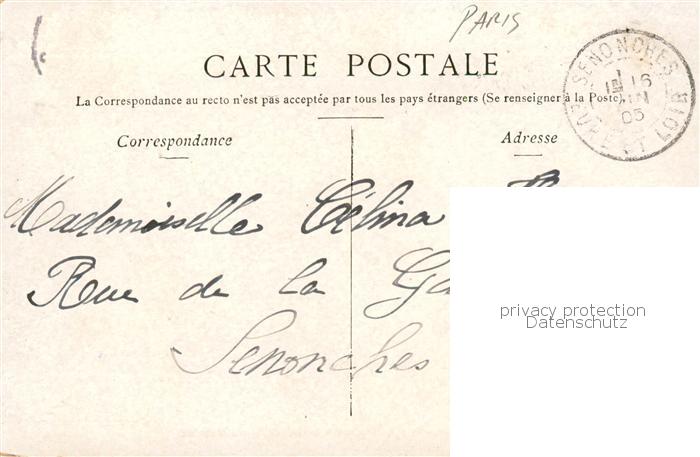 PARIS
CARTE POSTALE
La Correspondance au recto n'est pas acceptée par tous les pays étrangers (Se renseigner à la Poste).
SENONCHES
16
05
EURE ET LOIR
Correspondance
Adresse
Mademoiselle Célina
Rue de la
Senonches
privacy protection
Datenschutz